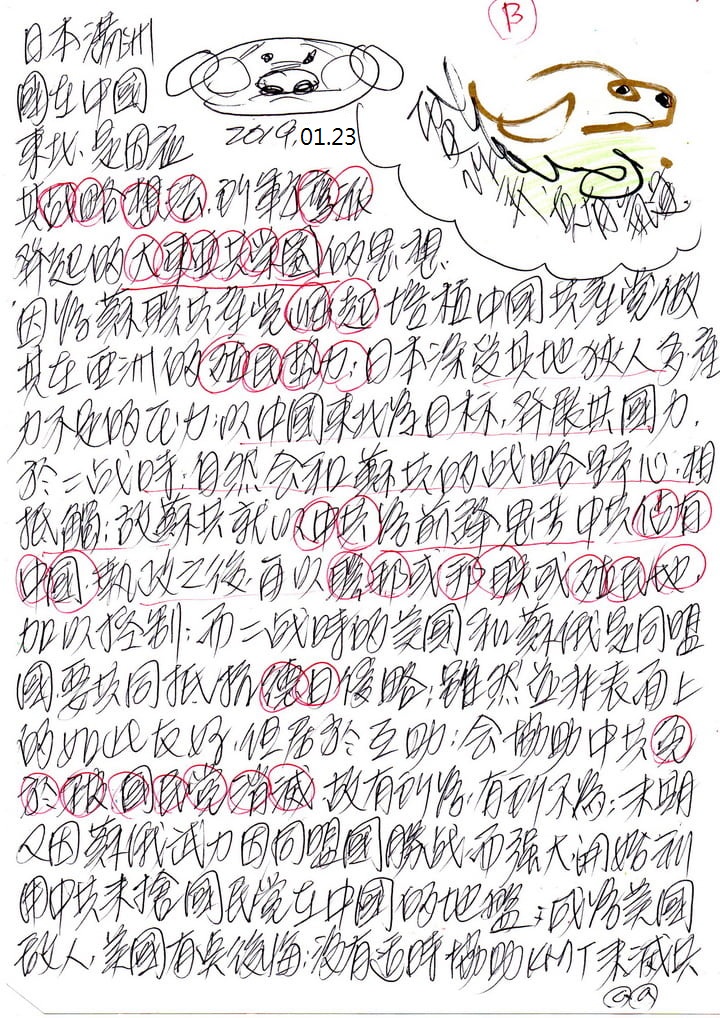 β
日本滿洲
國在中國
2019.01.23
東北,是因祖
其战略想法,
發起的大東亚共荣圈的思想.
因為蘇联共產党崛起培植中國共產党做
其在亚洲的殖民勢力;日本深受其地狹人多產
力不足的压力;以中國東北為目标,發展其國力,
於二战時,自然会和蘇共的战略野心,相
抵觸;故蘇共就以中共為前鋒思考中共佔有
中國執政之後,再以聯邦或邦联或殖民地,
加以控制;而二战時的美國和蘇俄是同盟
國,要共同抵抗德日侵略;雖然並非表面上
的如此友好,但居於互助;会協助中共免
於被國民党消滅,故有所為,有所不為;末期
又因蘇俄武力因同盟國勝战,而强大,開始利
用中共来搶國民党在中國的地盤;成為美國
敌人,美國有奌後悔;沒有适時協助KMT来滅共